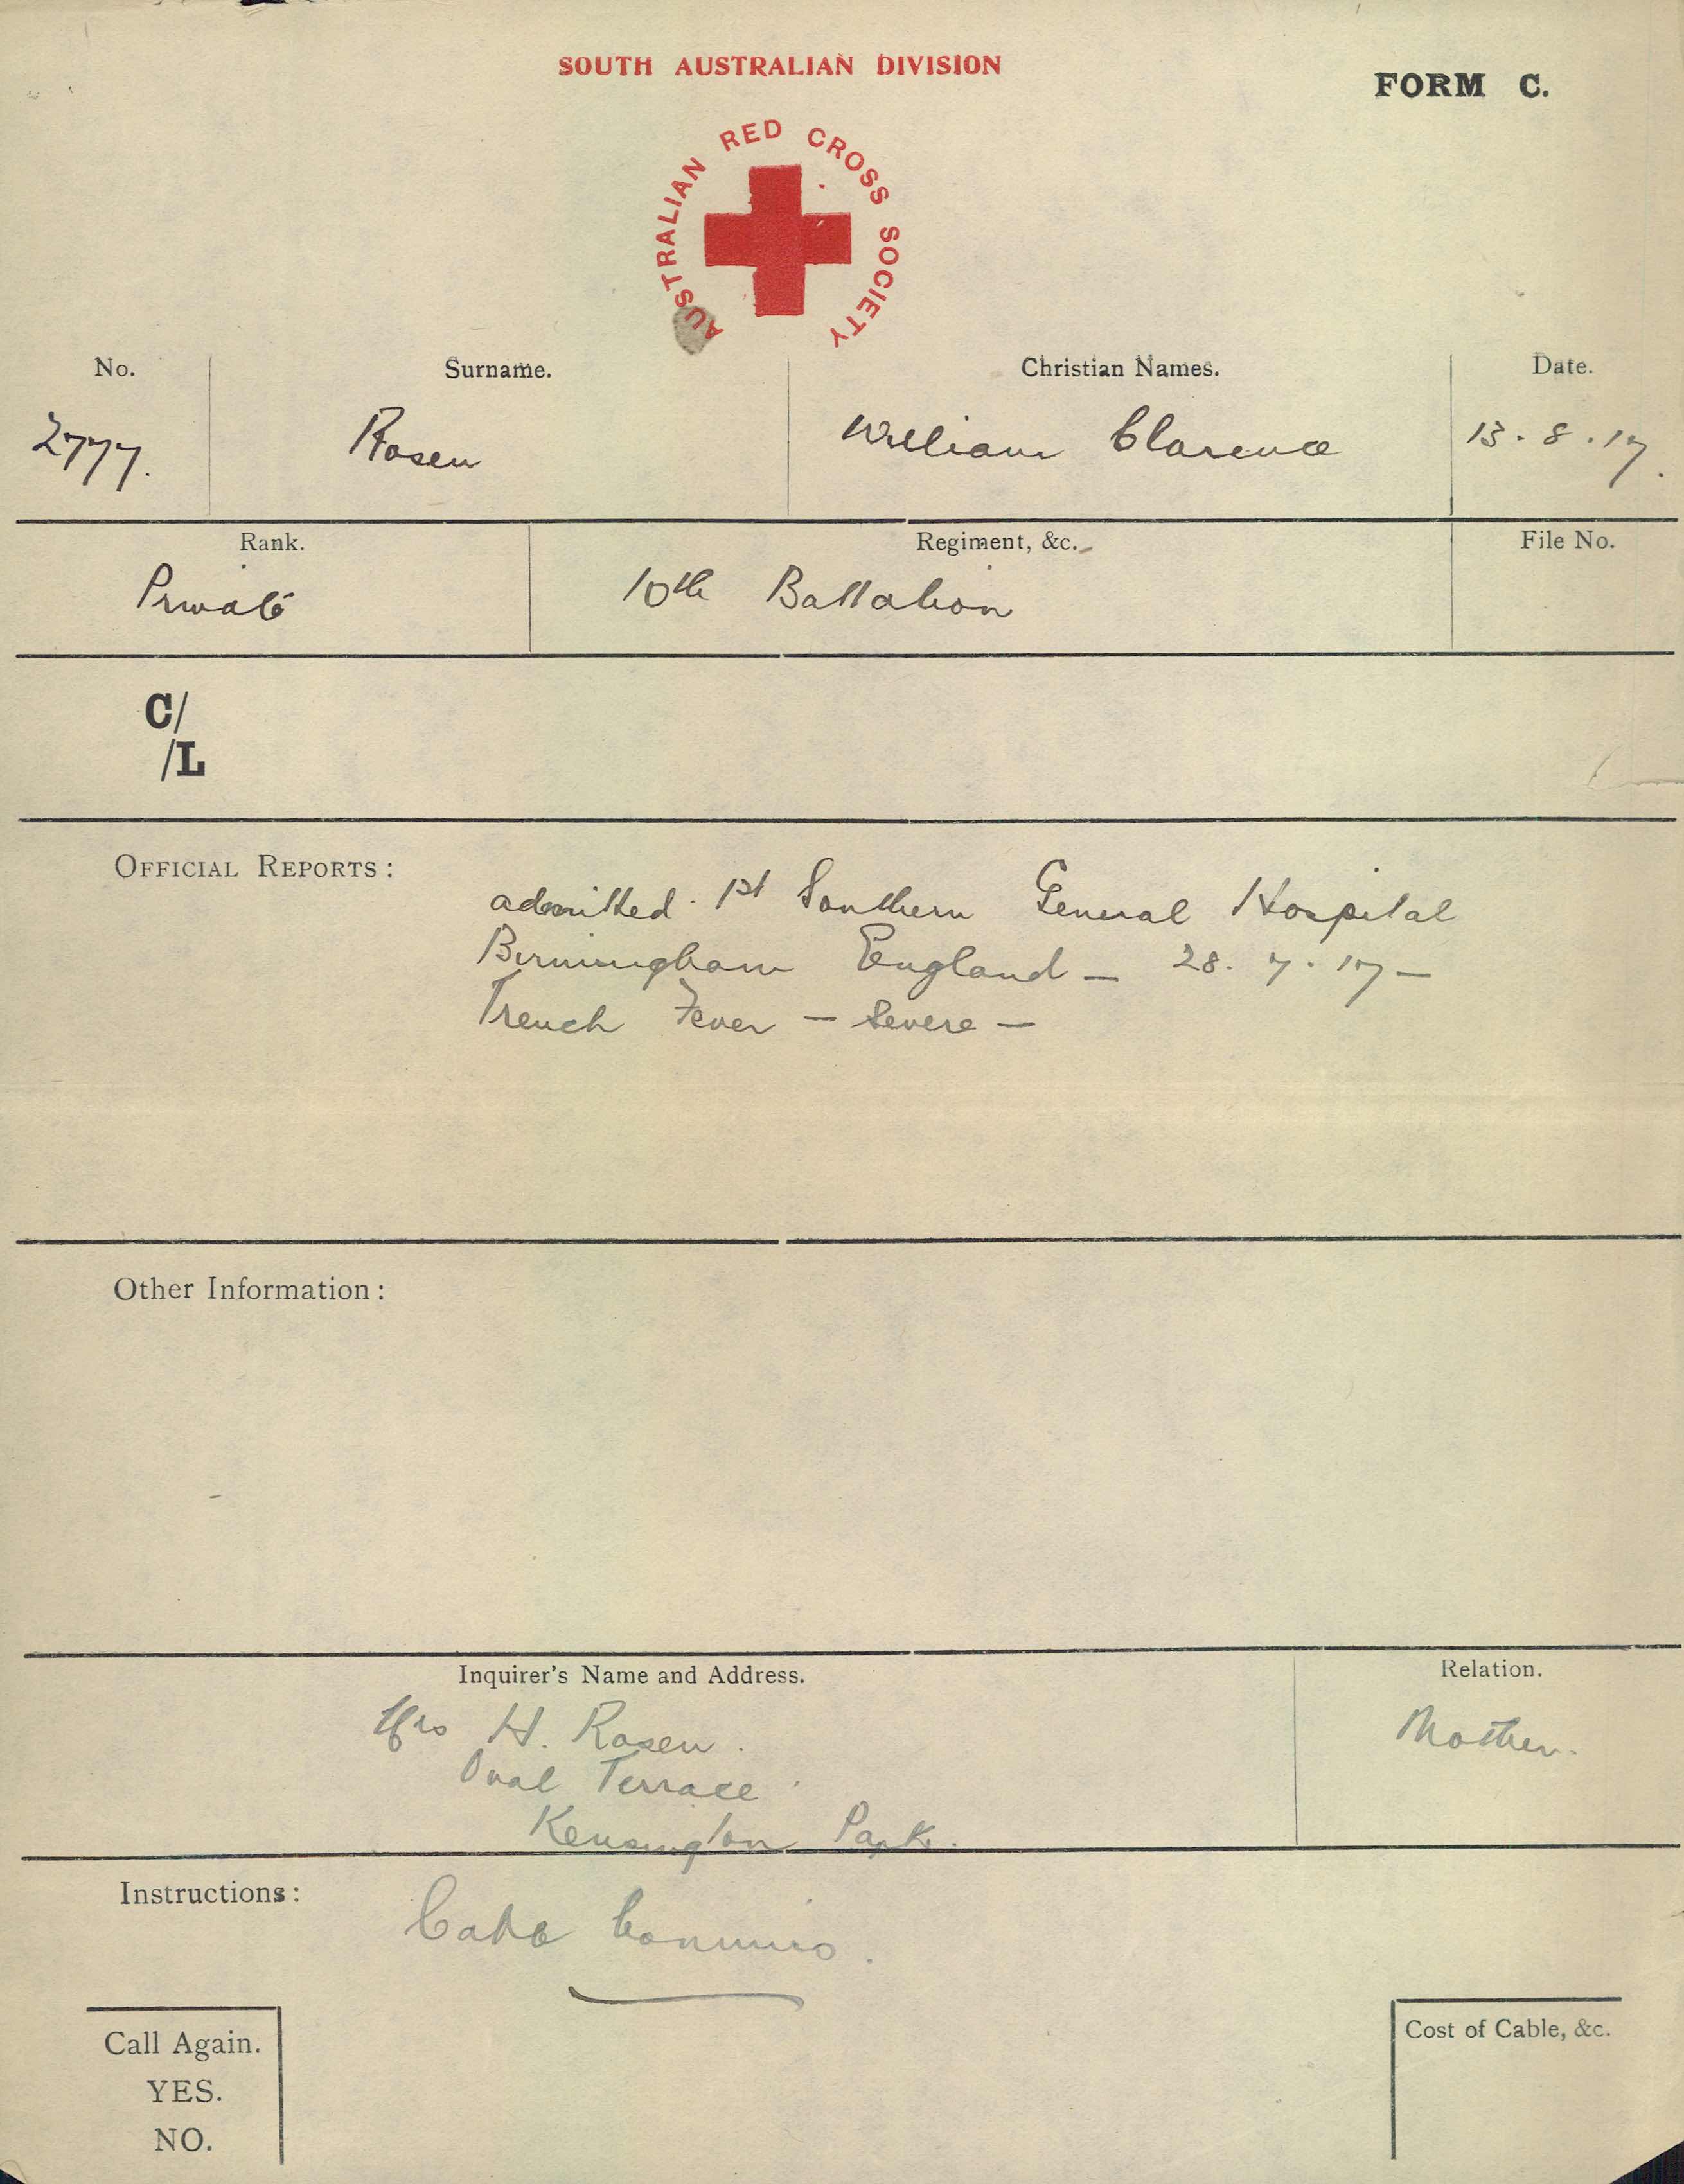 SOUTH AUSTRALIAN DIVISION
FORM C.
AUSTRALIAN RED CROSS SOCIETY
No. Surname. Christian Names. Date.
2777. Rosen William Clarence 13.8.17.
Rank. Regiment, &c. File No.
Private 10th Battalion
C/
/L
OFFICIAL REPORTS:
admitted 1st Southern General Hospital
Birmingham England — 28.7.17 —
Trench Fever — Severe —
Other Information:
Inquirer's Name and Address. Relation.
Mrs H. Rosen. Mother.
Oval Terrace
Kensington Park.
Instructions: Cable
Call Again.
YES.
NO.
Cost of Cable, &c.